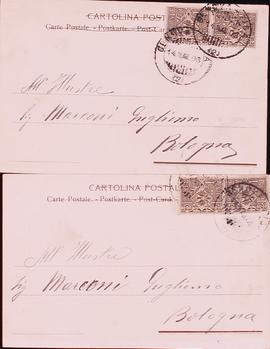 CARTOLINA POSTA
Carte Postale. - Postkarte. - Post-Card
All' Illustre
Sig Marconi Guglielmo
Bologna
CARTOLINA POSTAL
Carte Postale. - Postkarte. - Post-Card
All' Illustre
Sig Marconi Guglielmo
Bologna